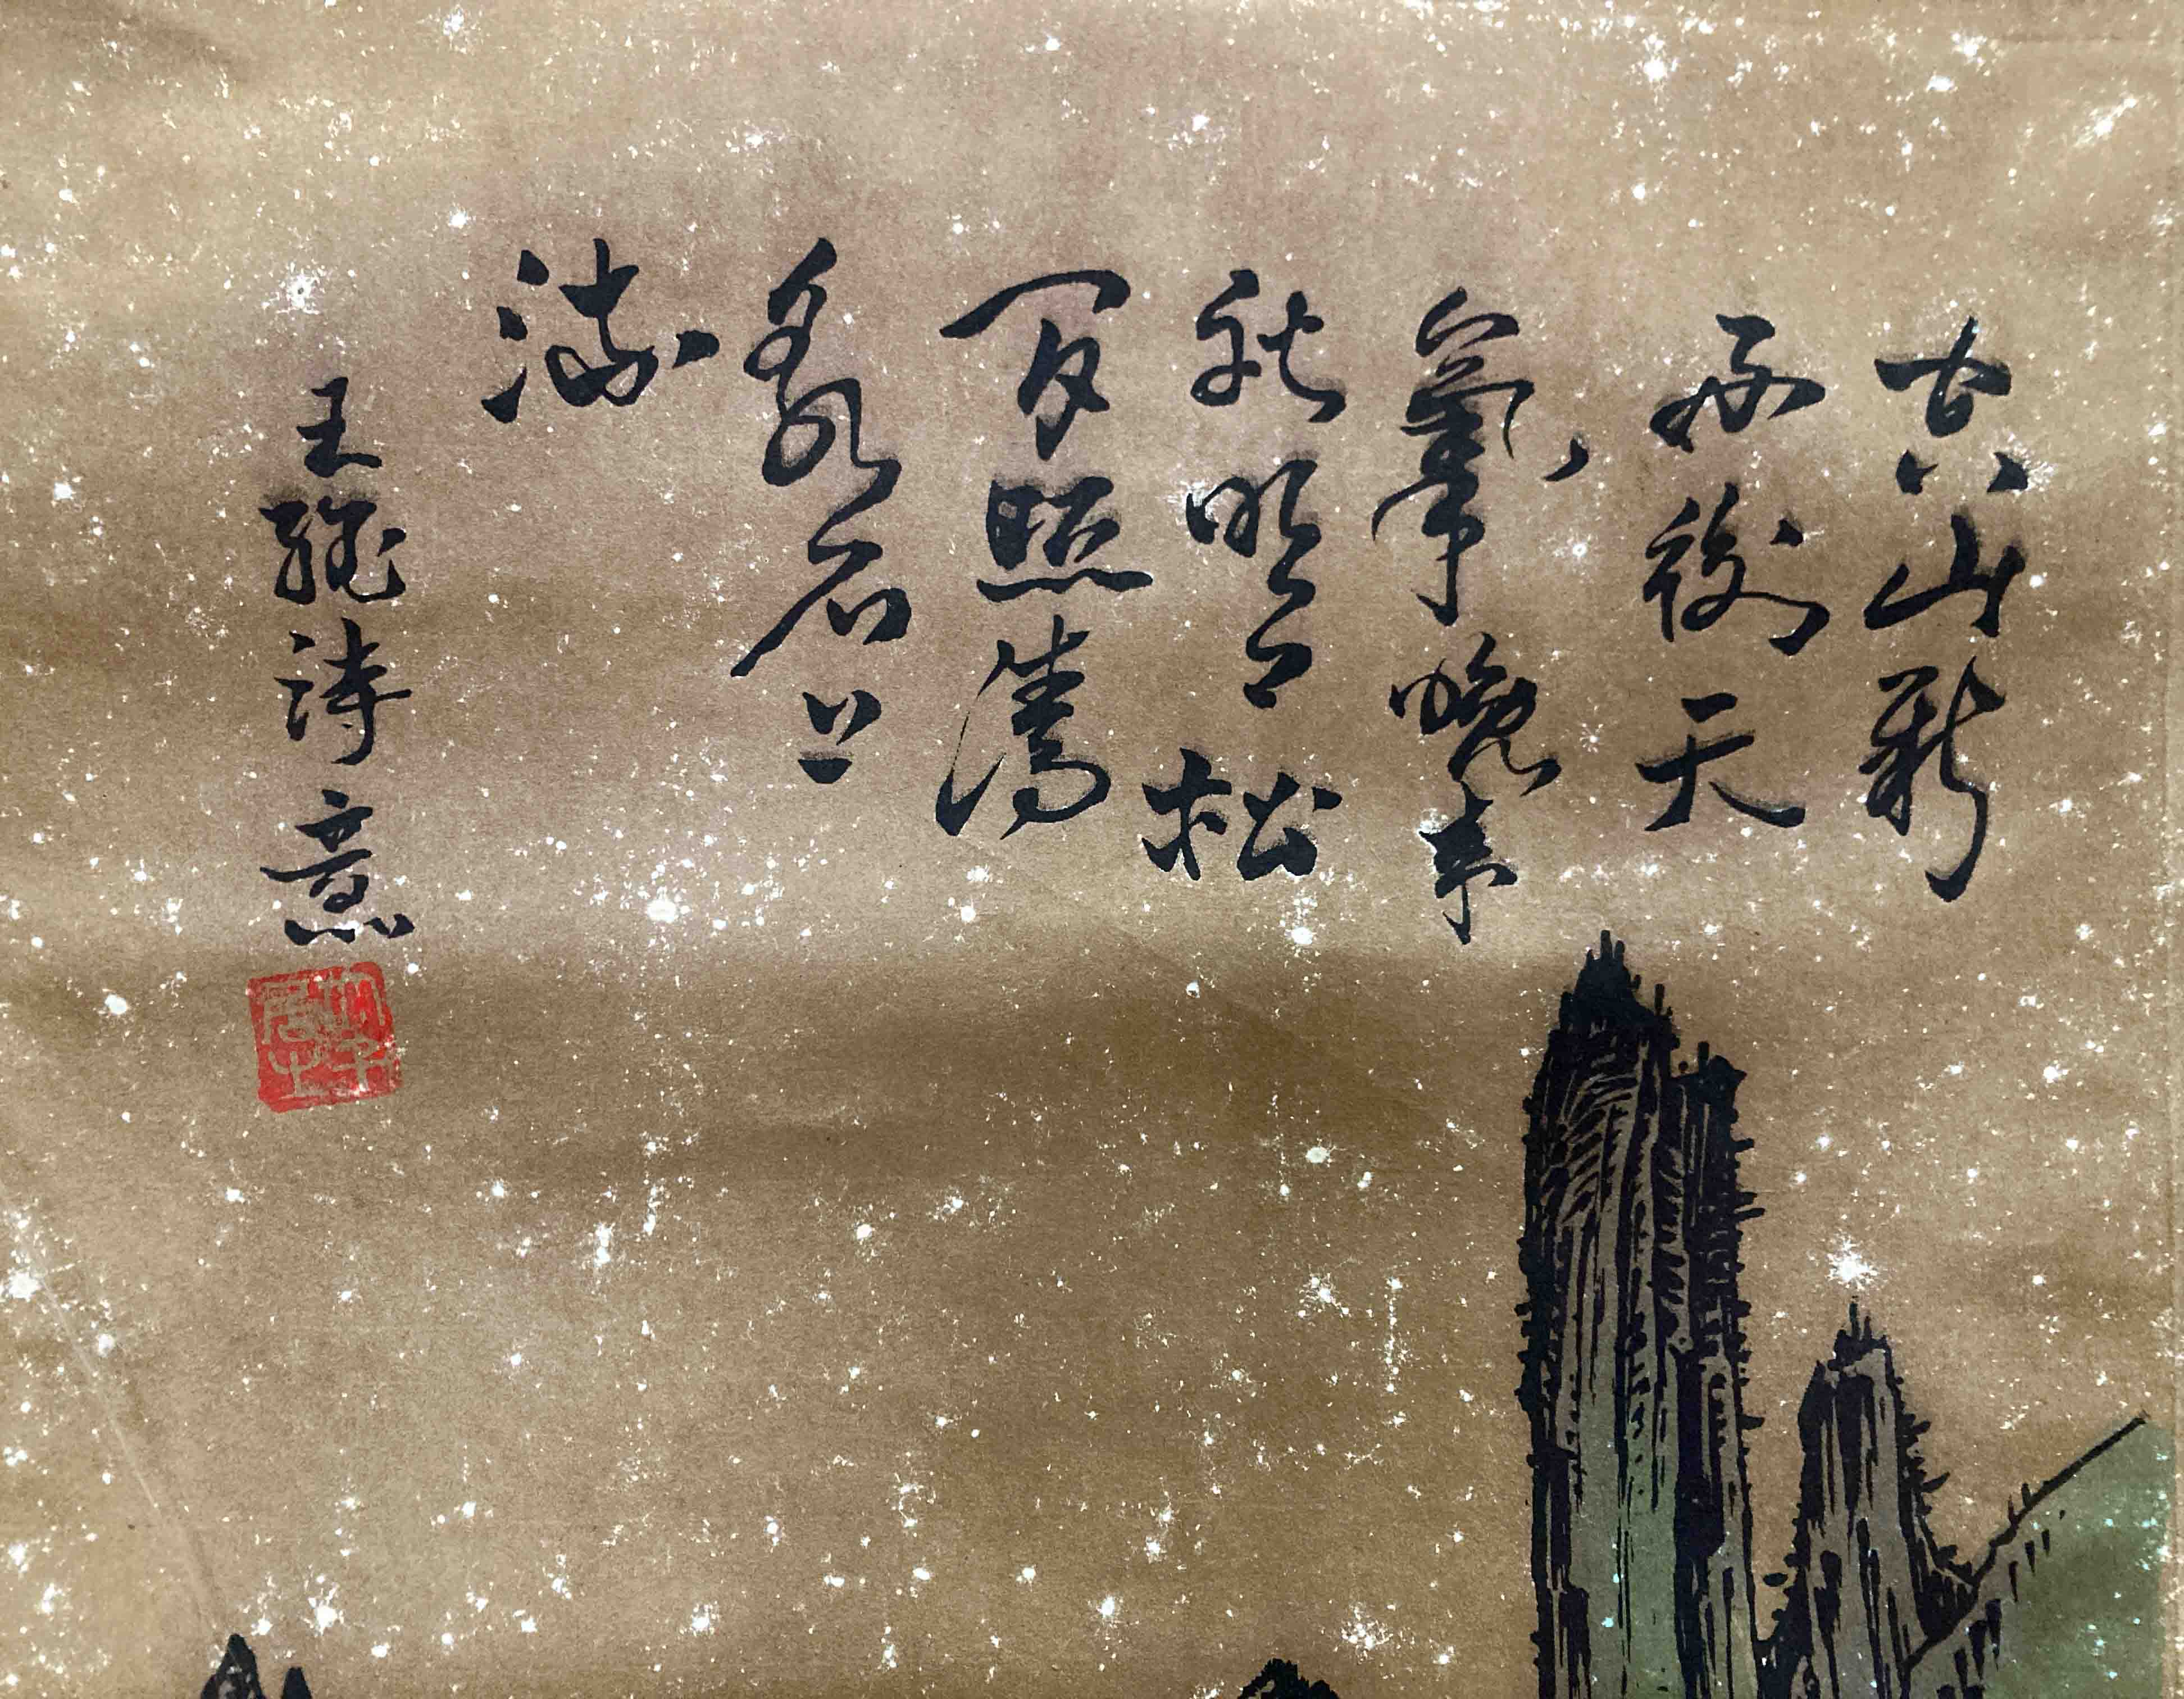 空山新
雨後天
氣晚來
秋明月松
間照清
泉石上
流
王維詩意